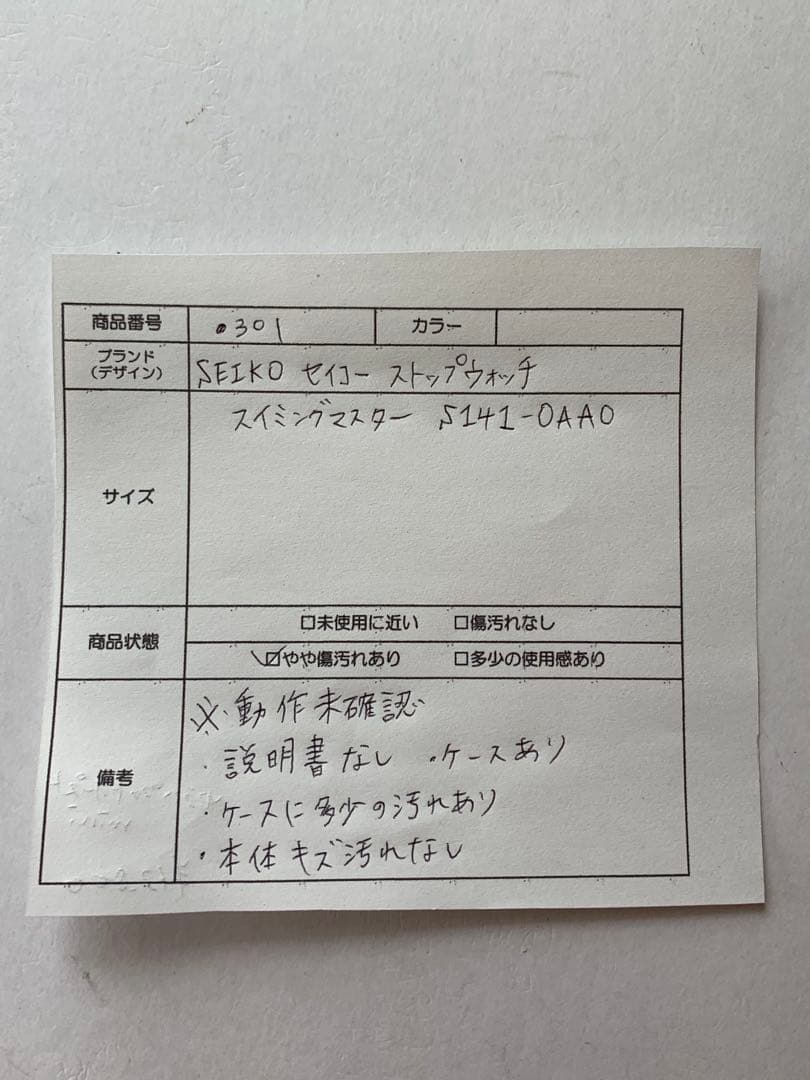 商品番号 •301 カラー
ブランド
(デザイン)
SEIKO セイコー ストップウォッチ
スイミングマスター S141-0AA0
サイズ
商品状態
□未使用に近い □傷汚れなし
☑やや傷汚れあり □多少の使用感あり
備考
※動作未確認
・説明書なし ・ケースあり
・ケースに多少の汚れあり
・本体キズ汚れなし